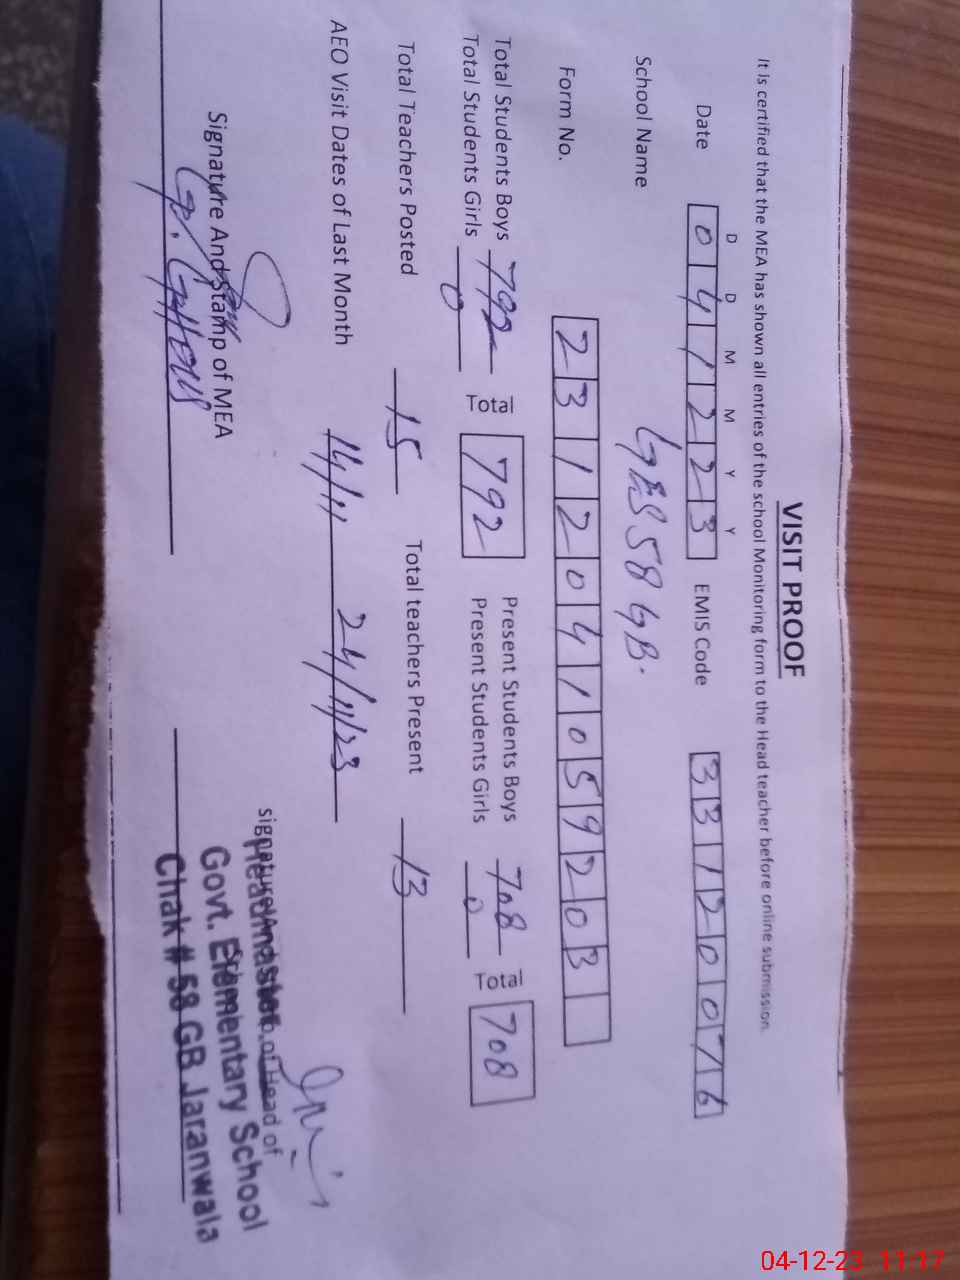 VISIT PROOF
It is certified that the MEA has shown all entries of the school Monitoring form to the Head teacher before online submission.
D D M M Y Y
Date 0 4 1 2 2 3 EMIS Code 3 3 1 2 0 0 7 6
School Name GES 58 GB.
Form No. 2 3 1 2 0 4 1 0 5 9 2 0 3
Total Students Boys 792 Total 792 Present Students Boys 708 Total 708
Total Students Girls 0 Present Students Girls 0
Total Teachers Posted 15 Total teachers Present 13
AEO Visit Dates of Last Month 14/11 24/11/23
Signature And Stamp of MEA
signature And Stamp of Head of
Headmaster
Govt. Elementary School
Chak # 58 GB Jaranwala
04-12-23 11:17